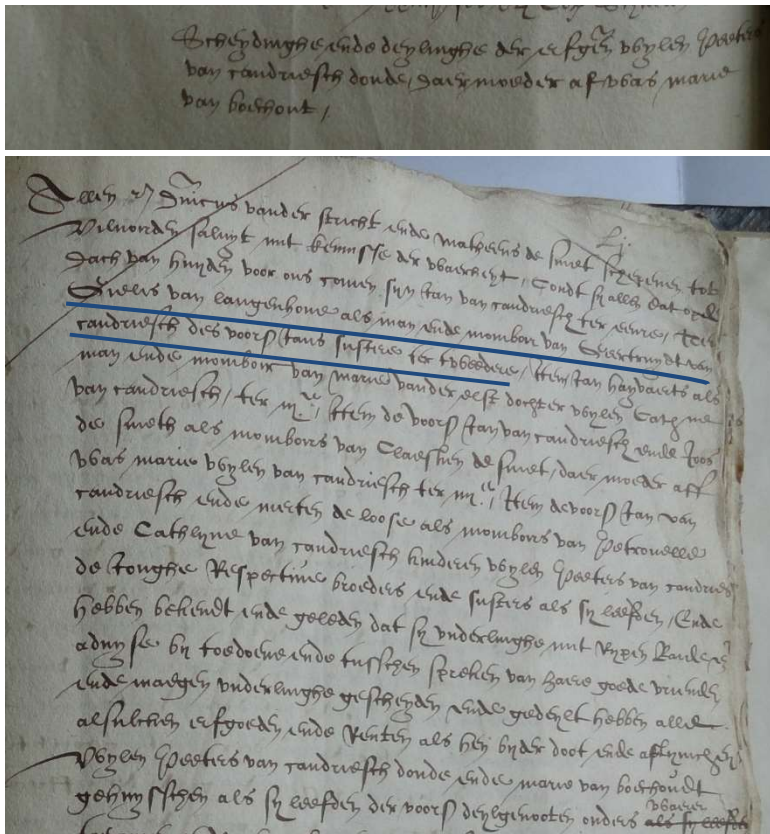 Scheydinghe ende deylinghe der erfgen wylen Peeters
van candriesch doude, daer moeder af was marie
van bochout,
Allen etc Henricus vander stricht ende Matheeus de smet schepenen tot
Vilvorden saluyt mit kennisse der waerheyt, Condt sy allen dat op den
dach van huyden voor ons comen syn Jan van candriesch ter eenre, Item
Gielis van langenhove als man ende momboir van Geertruydt van
candriesch des voors Jans sustere ter tweedere, Item Jan hayvaerts als
man ende momboir van marie vander elst dochter wylen Cathlyne
van candriesch, ter iije, Item de voors Jan van candriesch ende Joos
de smeth als momboirs van Claesken de smet, daer moeder aff
was marie wylen van candriesch ter iiije, Item de voors Jan van
candriesch ende merten de loose als momboirs van Petronelle
ende Cathlyne van candriesch kinderen wylen Peeters van candriesch
de Jonghe Respective broeders ende susters als sy leefden, Ende
hebben bekendt ende geleden dat sy onderlinghe mit rypen Raede en
advyse by toedoene ende tusschen spreken van haere goede vrienden
ende maegen onderlinghe gescheyden ende gedeylt hebben alle
alsulcken erfgoeden ende Renten als hen byder doot ende aflyvicheyt
Wylen Peeters van candriesch doude ende marie van bochoudt
gehuysschen als sy leefden der voors deylgenooten ouders waeren
als sy leefden